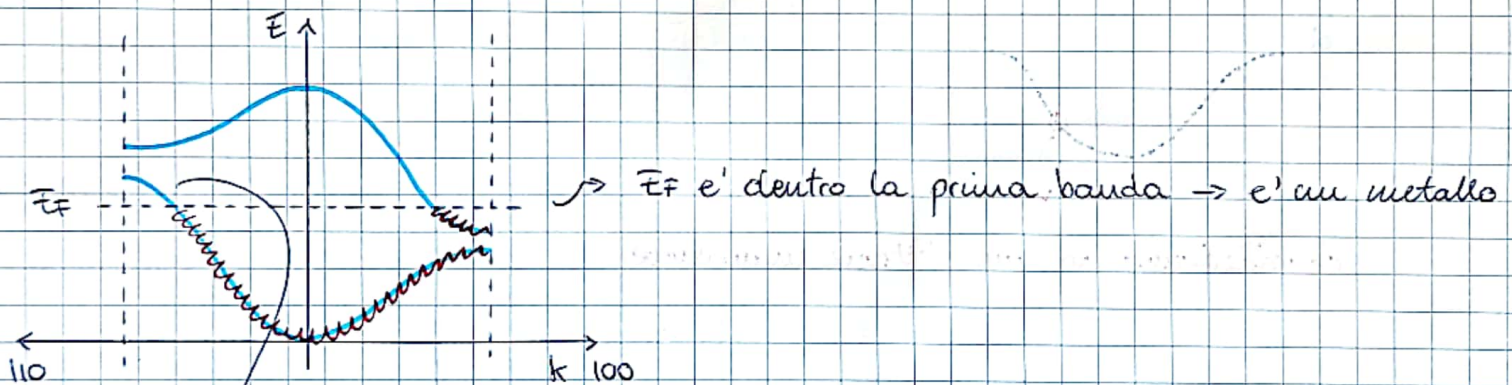 E
EF
EF e' dentro la prima banda → e' un metallo
110
k 100